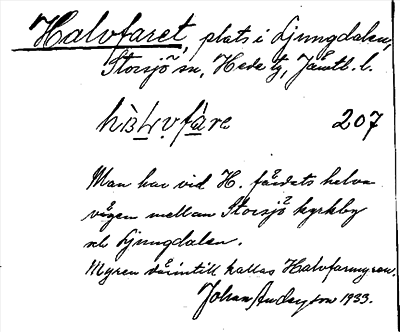 Halvfaret, plats i Ljungdalen,
Storsjö sn, Hede tg, Jämtl. l.
207
Man har vid H. färdats halva
vägen mellan Storsjö kyrkby
och Ljungdalen.
Myren därintill kallas Halvfarmyren.
Johan Anderson 1933.